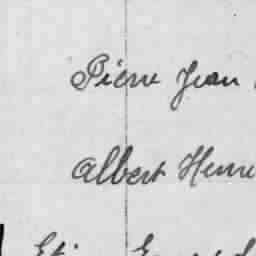 Pierre Jean
Albert Henri